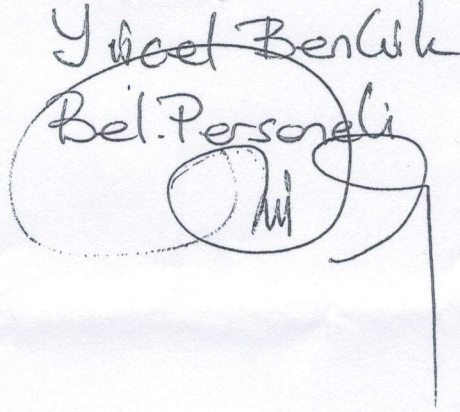 Yücel Benlik
Bel. Personeli